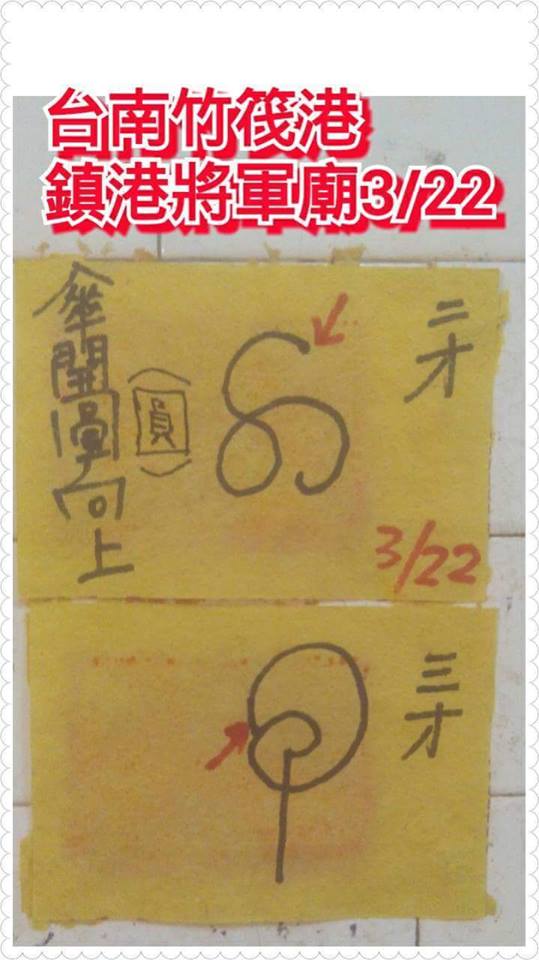 台南竹筏港
鎮港將軍廟3/22
二才
（圓）
傘開圓向上
3/22
三才